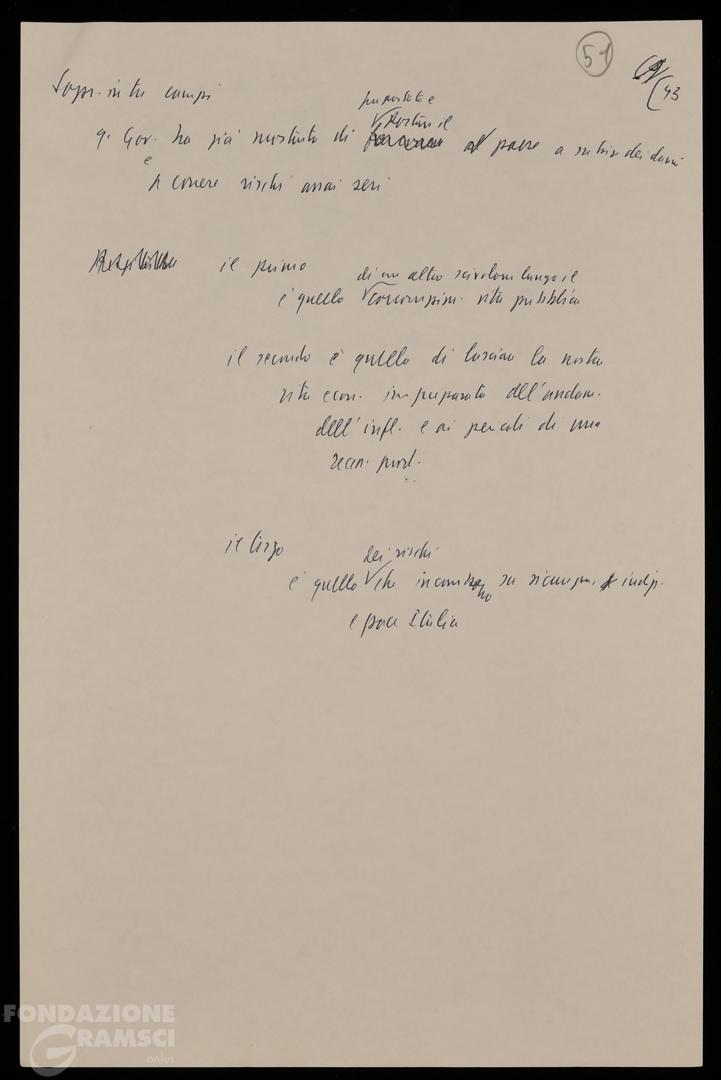 51
43
Sopr. in tre campi
q. Gov. ha già mostrato di
portare il
al paese a subire dei danni
e
a correre rischi assai seri
il primo
di un altro scivolam. lungo il
è quello vita pubblica
il secondo è quello di lasciare la nostra
vita econ. impreparata all'andam.
dell'infl. e ai pericoli di una
recess. prod.
il terzo
dei rischi
è quello che incombono su sicurezza, indip.
e pace Italia
FONDAZIONE
GRAMSCI
onlus